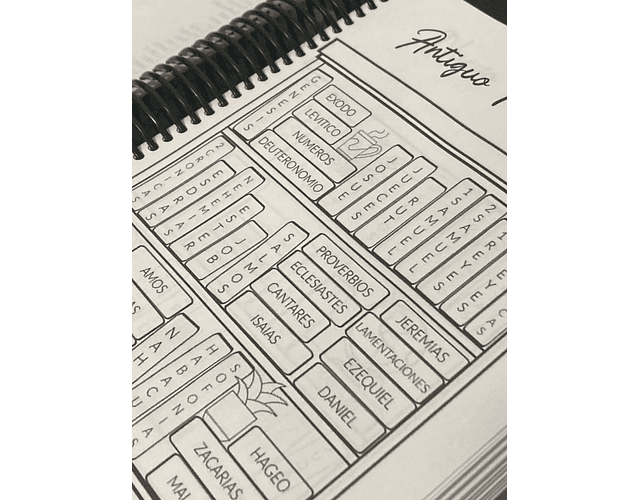 Antiguo
GENESIS
EXODO
LEVITICO
NUMEROS
DEUTERONOMIO
JOSUE
JUECES
RUT
1 SAMUEL
2 CRONICAS
ESDRAS
NEHEMIAS
ESTER
JOB
SALMOS
PROVERBIOS
ECLESIASTES
CANTARES
ISAIAS
JEREMIAS
LAMENTACIONES
EZEQUIEL
DANIEL
AMOS
HABACUC
SOFONIAS
HAGEO
ZACARIAS